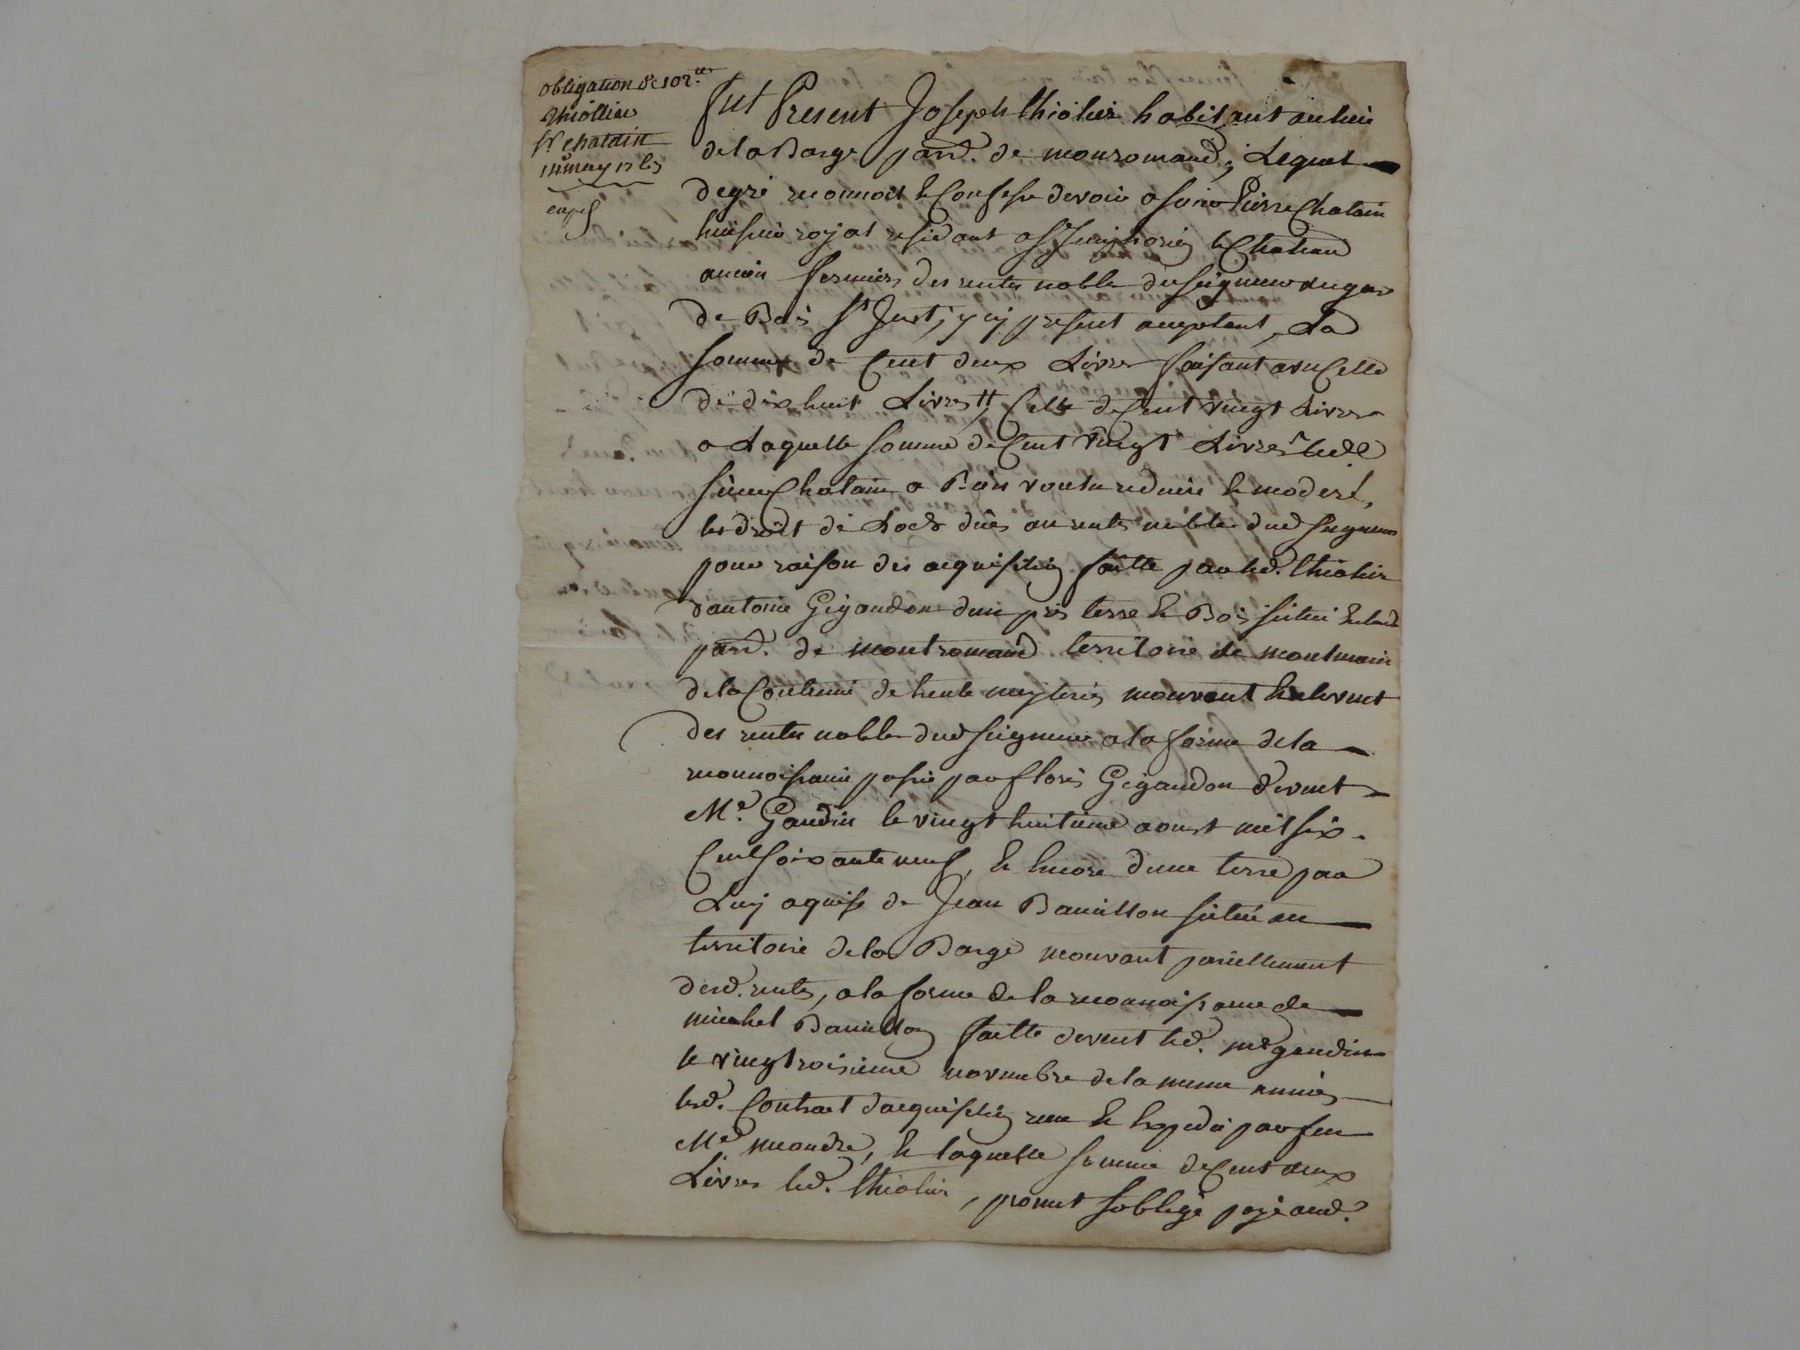 obligation de 102 ₶
Thiollier
Sr chatain
may
expé
fut Present Joseph thiolier habitant au lieu
de la Barge parr.e de monromand, Lequel
de gré reconnoit & Confesse devoir a sieur Pierre Chatain
huissier royal residant a St Simphorien le Chateau
ancien fermier des rentes noble du seigneur
de Bois St Just, icy present acceptant, La
somme de Cent deux Livres faisant avec Celle
de dix huit Livres Celle de Cent vingt Livres
a Laquelle somme de Cent vingt Livres led.
sieur Chatain a Bien voulu reduire & moderé
les droit de Lods dûes au rentes nobles dud seigneur
pour raison des acquisition faitte par led. thiolier
d'antoine Gigandon d'un prés terre & Bois situé
parr.e de montromand territoire de montmain
de la Contenue de trente mesterés mouvant & relevant
des rentes noble dud seigneur a la forme de la
reconnoissance passée par floris Gigandon devent
Me. Gaudin le vingt huitieme aoust mil six
Cent soixante neuf, & encore d'une terre par
Luy aquise de Jean Bauillon située au
territoire de la Barge mouvant pareillement
desd. rentes, a la forme de la reconnoissance de
michel Bauillon faitte devent led. me gaudin
le vingtroisieme novembre de la meme année
led. Contract d'acquisition reçu & expedié par feu
Me meandre, & laquelle somme de Cent deux
Livres led. thiolier, promet s'oblige payé aud.